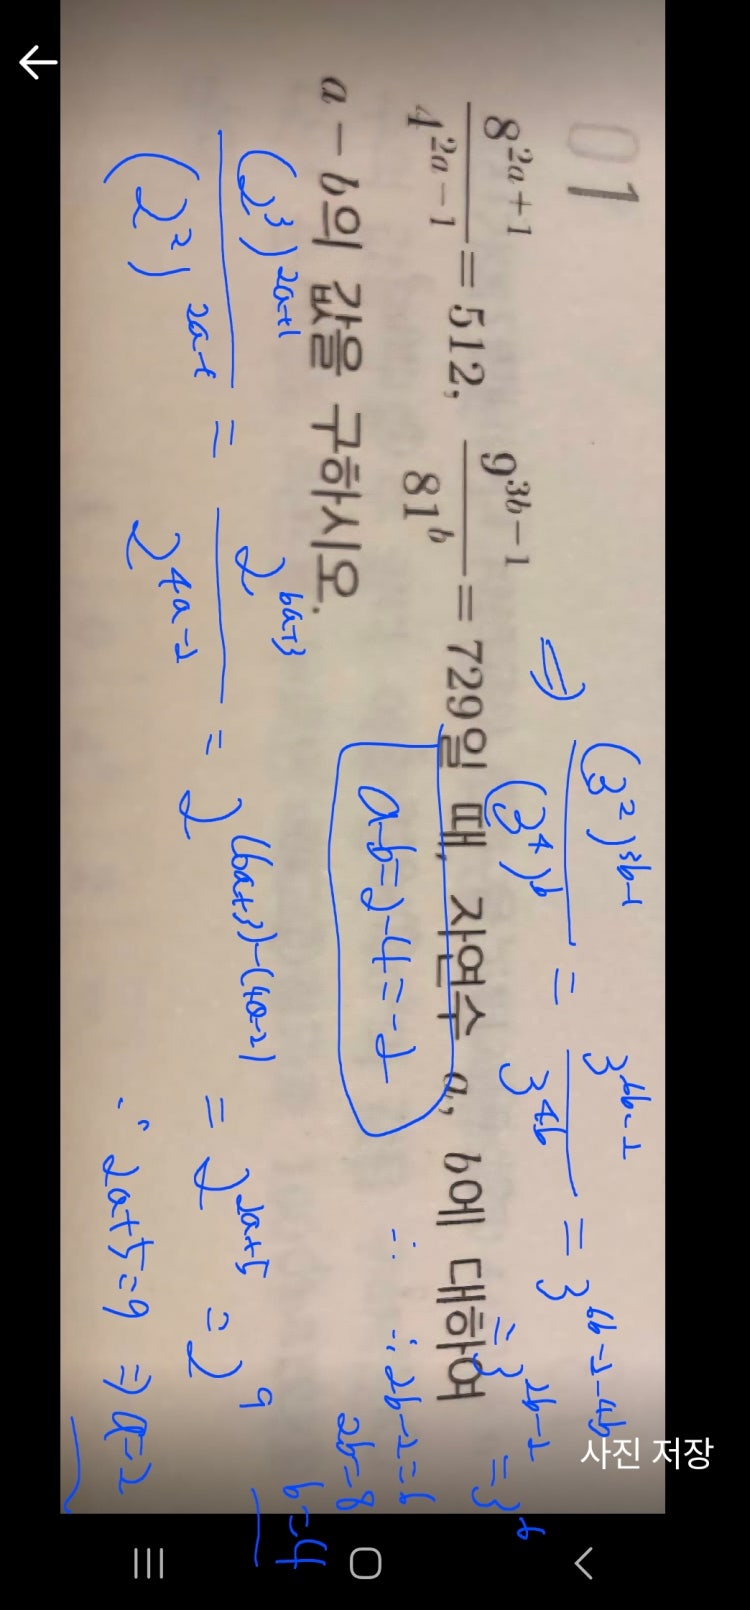 01
8^{2a+1}/4^{2a-1} = 512, 9^{3b-1}/81^{b} = 729일 때, 자연수 a, b에 대하여
a-b의 값을 구하시오.
⇒ (3^2)^{3b-1}/(3^4)^b = 3^{6b-2}/3^{4b} = 3^{6b-2-4b}
= 3^{2b-2} = 3^6
∴ ∴ 2b-2=6
2b=8
b=4
(2^3)^{2a+1}/(2^2)^{2a-1} = 2^{6a+3}/2^{4a-2} = 2^{(6a+3)-(4a-2)} = 2^{2a+5} = 2^9
∴ 2a+5=9 ⇒ a=2
a-b=2-4=-2
사진 저장